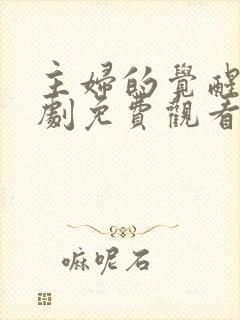 主婦的覺醒
劇免費觀看
嘛呢石